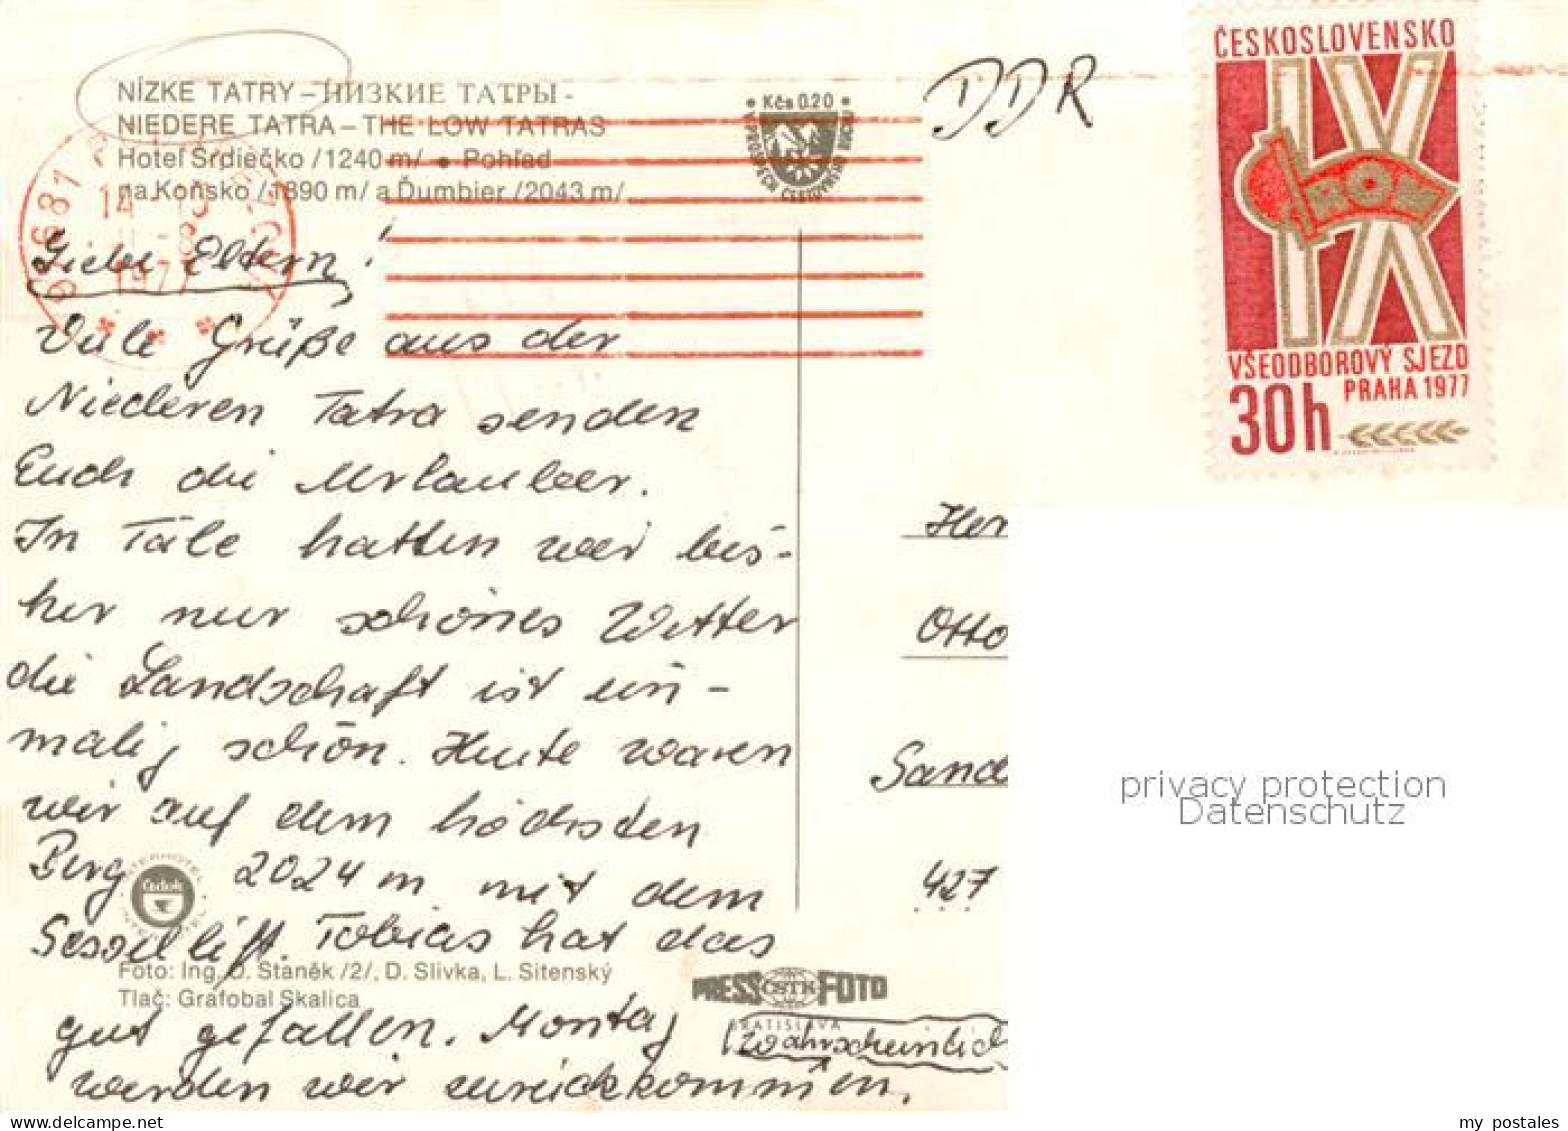 NÍZKE TATRY – НИЗКИЕ ТАТРЫ -
NIEDERE TATRA – THE LOW TATRAS
Hotel Srdiečko /1240 m/ • Pohľad
na Koňsko /1890 m/ a Ďumbier /2043 m/
• Kčs 0.20 •
DDR
ČESKOSLOVENSKO
IX
ROH
VŠEODBOROVÝ SJEZD
PRAHA 1977
30h
14
1977
Liebe Eltern!
Viele Grüße aus der
Niederen Tatra senden
Euch die Urlauber.
In Täle hatten wir bis-
her nur schönes Wetter
die Landschaft ist ein-
malig schön. Heute waren
wir auf dem höchsten
Berg 2024 m mit dem
Sessellift. Tobias hat das
gut gefallen. Montag (wahrscheinlich
werden wir zurückkommen.
Her
Otto
Sand
427
Čedok
Foto: Ing. O. Staněk /2/, D. Slivka, L. Sitenský
Tlač: Grafobal Skalica
PRESS ČSTK FOTO
BRATISLAVA
privacy protection
Datenschutz
my postales